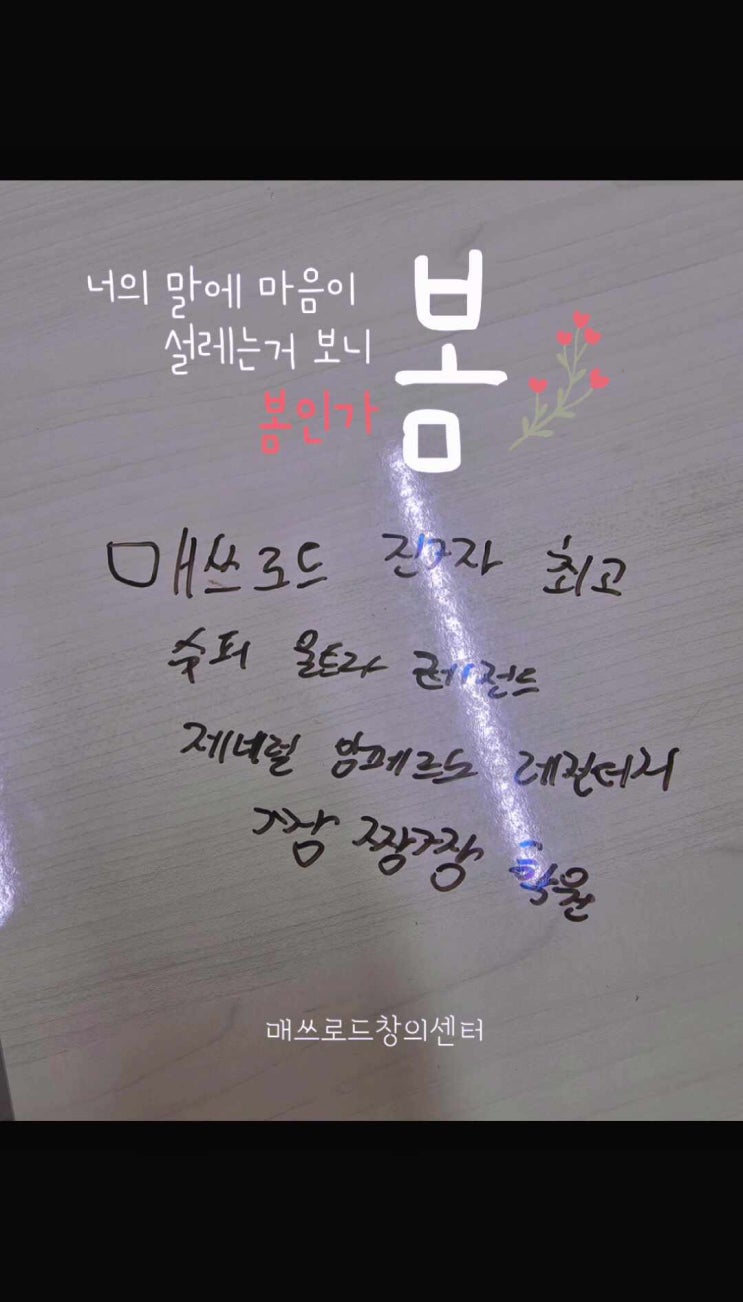 너의 말에 마음이
설레는거 보니
봄인가
봄
매쓰로드 진짜 최고
슈퍼 울트라 레전드
제너럴 암페르노 레전더리
가장 짱가장 학원
매쓰로드창의센터